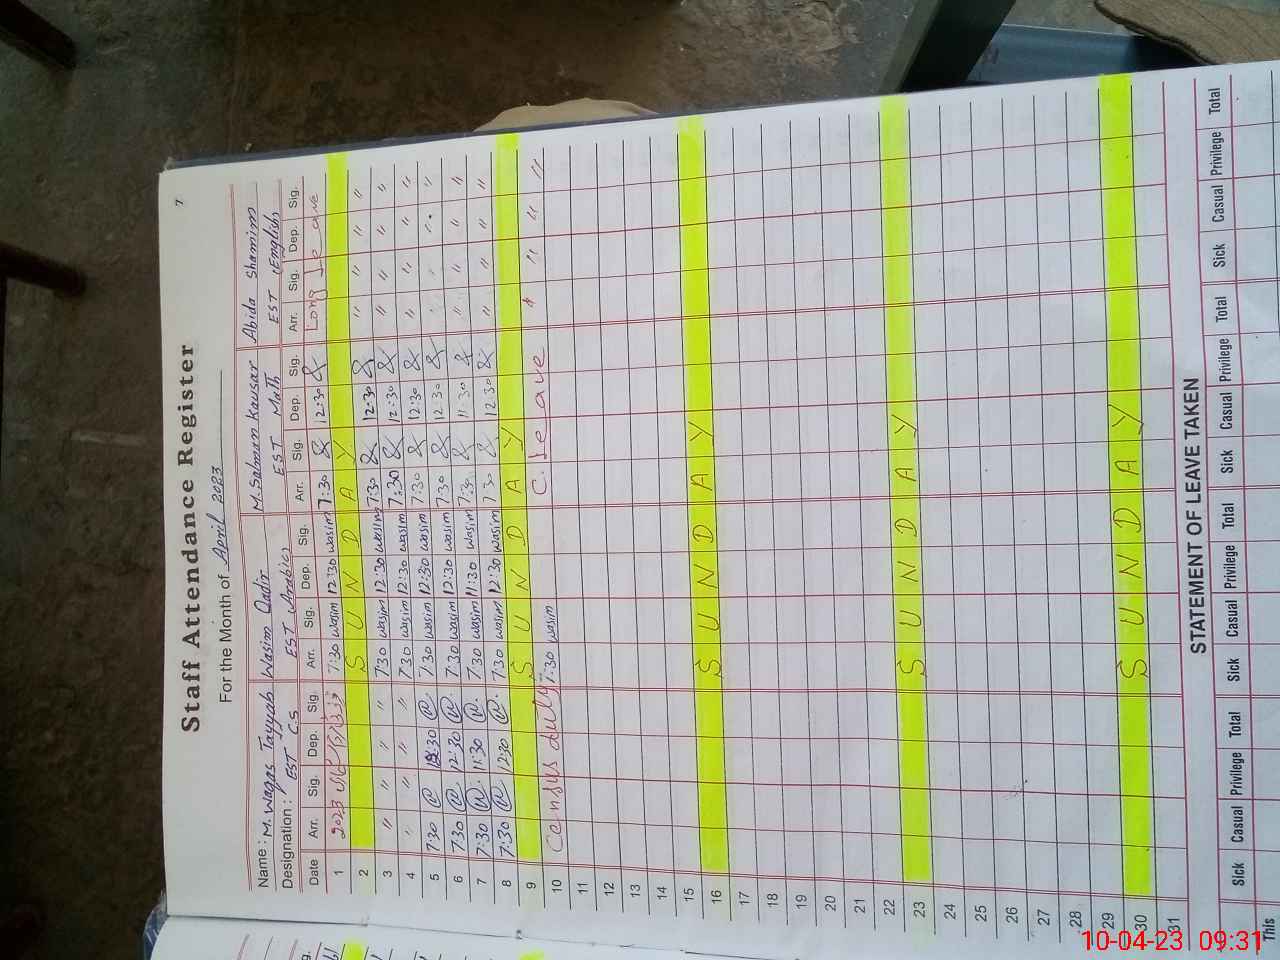 7
Staff Attendance Register
For the Month of April 2023
Name : M. Waqas Tayyab Wasim Qadir M. Salman Kausar Abida Shamim
Designation : EST C.S EST (Arabic) EST Math EST (English)
Date Arr. Sig. Dep. Sig. Arr. Sig. Dep. Sig. Arr. Sig. Dep. Sig. Arr. Sig. Dep. Sig.
1 2023 7:30 wasim 12:30 wasim 7:30 12:30 Long Leave
2 SUNDAY " " " "
3 " " " " 7:30 wasim 12:30 wasim 7:30 12:30 " " " "
4 " " " " 7:30 wasim 12:30 wasim 7:30 12:30 " " " "
5 7:30 12:30 7:30 wasim 12:30 wasim 7:30 12:30 " " " "
6 7:30 12:30 7:30 wasim 12:30 wasim 7:30 12:30 " " " "
7 7:30 11:30 7:30 wasim 11:30 wasim 7:30 11:30 " " " "
8 7:30 12:30 7:30 wasim 12:30 wasim 7:30 12:30 " " " "
9 SUNDAY
10 Census dutty 7:30 wasim C. Leave " " " "
11
12
13
14
15
16 SUNDAY
17
18
19
20
21
22
23 SUNDAY
24
25
26
27
28
29
30 SUNDAY
31
STATEMENT OF LEAVE TAKEN
Sick Casual Privilege Total Sick Casual Privilege Total Sick Casual Privilege Total Sick Casual Privilege Total
This
10-04-23 09:31